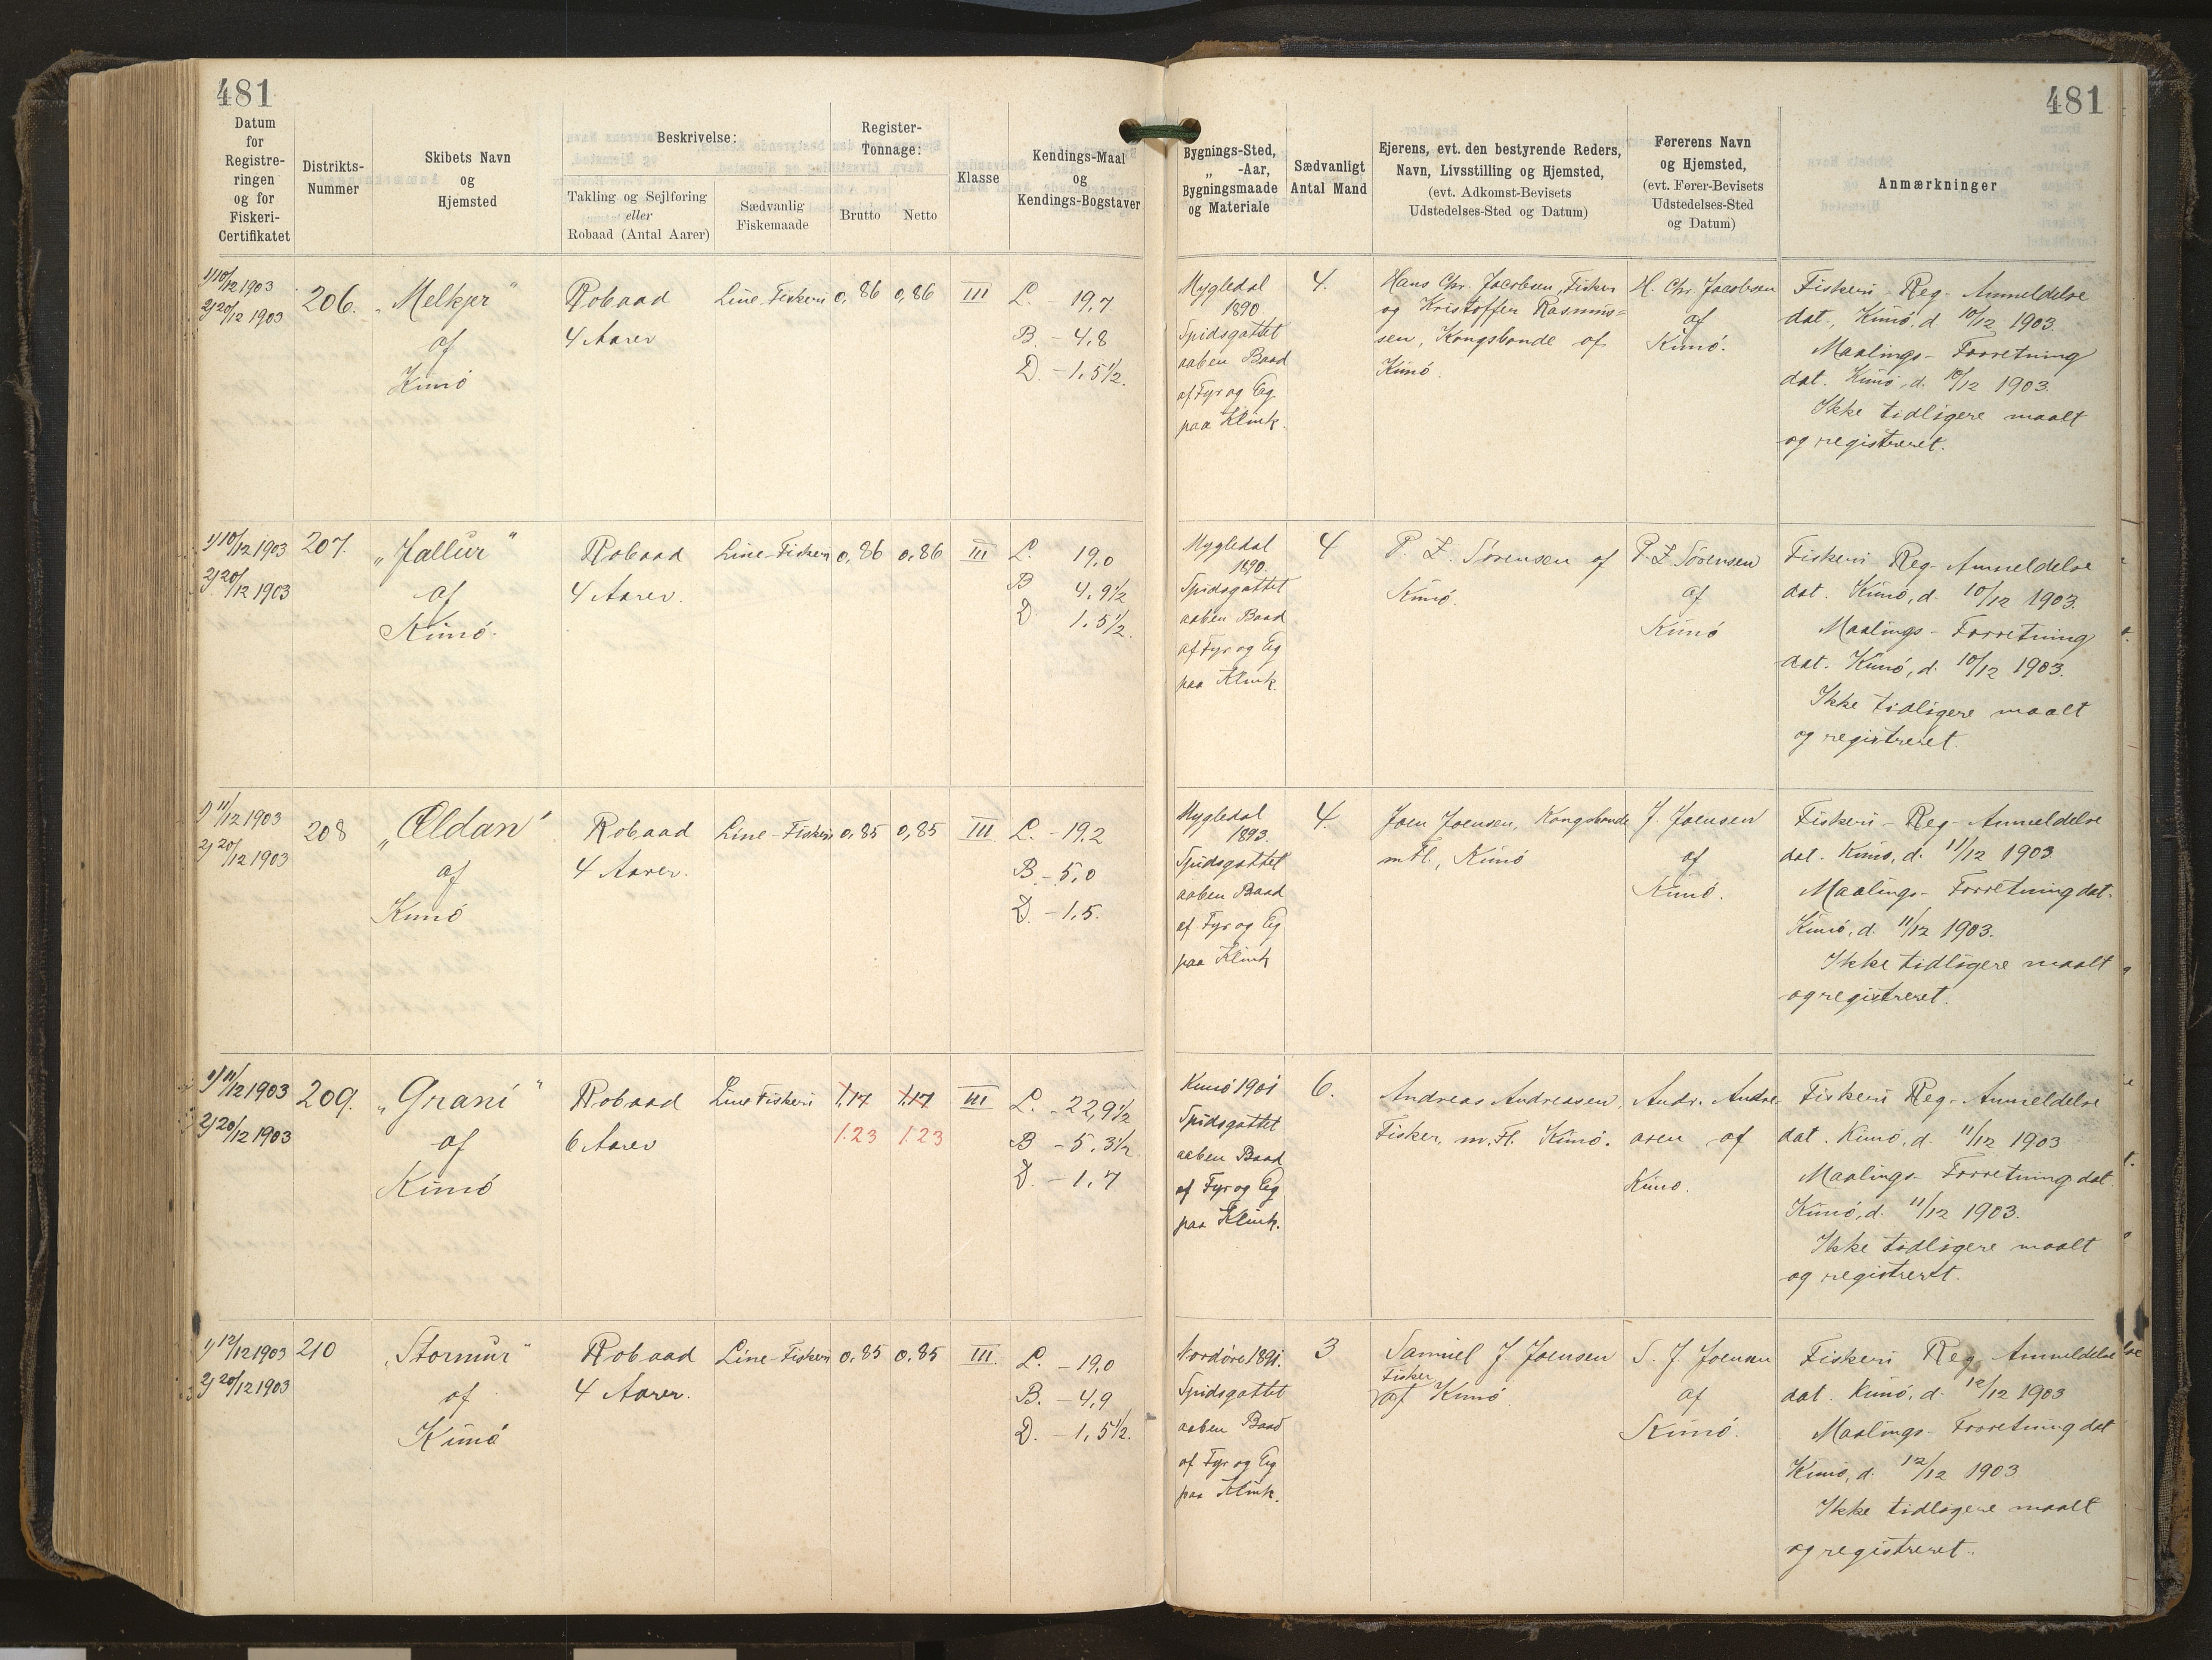 481
481
Datum
for
Registre-
ringen
og for
Fiskeri-
Certifikatet
Distrikts-
Nummer
Skibets Navn
og
Hjemsted
Beskrivelse:
Takling og Sejlføring
eller
Robaad (Antal Aarer)
Sædvanlig
Fiskemaade
Register-
Tonnage:
Brutto
Netto
Klasse
Kendings-Maal
og
Kendings-Bogstaver
Bygnings-Sted,
„ -Aar,
Bygningsmaade
og Materiale
Sædvanligt
Antal Mand
Ejerens, evt. den bestyrende Reders,
Navn, Livsstilling og Hjemsted,
(evt. Adkomst-Bevisets
Udstedelses-Sted og Datum)
Førerens Navn
og Hjemsted,
(evt. Fører-Bevisets
Udstedelses-Sted
og Datum)
Anmærkninger
1) 10/12 1903
2) 20/12 1903
206.
„Melkjer"
af
Kunö
Robaad
4 Aarer
Line-Fiskeri
0,86
0,86
III
L. 19,7
B. - 4,8
D. - 1,5½.
Mygledal
1890
Spidsgattet
aaben Baad
af Fyr og Eg
paa Klink.
4.
Hans Chr. Jacobsen, Fisker
og Kristoffer Rasmus=
sen, Kongsbonde af
Kunö.
H. Chr. Jacobsen
af
Kunö.
Fiskeri-Reg-Anmeldelse
dat., Kunö, d. 10/12 1903.
Maalings-Forretning
dat. Kunö, d. 10/12 1903.
Ikke tidligere maalt
og registreret.
1) 10/12 1903
2) 20/12 1903
207.
„Jallur"
af
Kunö.
Robaad
4 Aarer.
Line-Fiskeri
0,86
0,86
III
L. 19,0
B 4,9½
D. 1,5½.
Mygledal
1890.
Spidsgattet
aaben Baad
af Fyr og Eg
paa Klink.
4
P. Z. Sörensen af
Kunö.
P. Z Sörensen
af
Kunö
Fiskeri Reg-Anmeldelse
dat. Kunö, d. 10/12 1903.
Maalings-Forretning
dat. Kunö, d. 10/12 1903.
Ikke tidligere maalt
og registreret.
1) 11/12 1903
2) 20/12 1903
208
„Œldan"
af
Kunö
Robaad
4 Aarer.
Line-Fiskeri
0,85
0,85
III
L. - 19,2
B. - 5,0
D. - 1,5.
Mygledal
1893.
Spidsgattet
aaben Baad
af Fyr og Eg
paa Klink
4.
Joen Joensen, Kongsbonde
m Fl., Kunö
J. Joensen
af
Kunö.
Fiskeri-Reg-Anmeldelse
dat. Kunö, d. 11/12 1903
Maalings-Forretning dat.
Kunö, d. 11/12 1903.
Ikke tidligere maalt
og registreret.
1) 11/12 1903
2) 20/12 1903
209.
„Grani"
af
Kunö
Robaad
6 Aarer
Line Fiskeri
1,17
1,17
1.23
1.23
III
L. - 22,9½
B - 5,3½
D. - 1,7
Kunö 1901
Spidsgattet
aaben Baad
af Fyr og Eg
paa Klink.
6.
Andreas Andreasen,
Fisker, m. Fl. Kunö.
Andr. Andre-
asen af
Kunö.
Fiskeri Reg-Anmeldelse
dat. Kunö, d. 11/12 1903
Maalings-Forretning dat.
Kunö, d. 11/12 1903.
Ikke tidligere maalt
og registreret.
1) 12/12 1903
2) 20/12 1903
210
„Stormur"
af
Kunö
Robaad
4 Aarer.
Line-Fiskeri
0,85
0,85
III.
L. - 19,0
B. - 4,9
D. - 1,5½.
Nordöre 1891.
Spidsgattet
aaben Baad
af Fyr og Eg
paa Klink.
3
Samuel J Joensen
Fisker
af Kunö
S. J Joensen
af
Kunö.
Fiskeri Reg Anmeldelse
dat. Kunö, d. 12/12 1903
Maalings-Forretning dat
Kunö, d. 12/12 1903
Ikke tidligere maalt
og registreret.